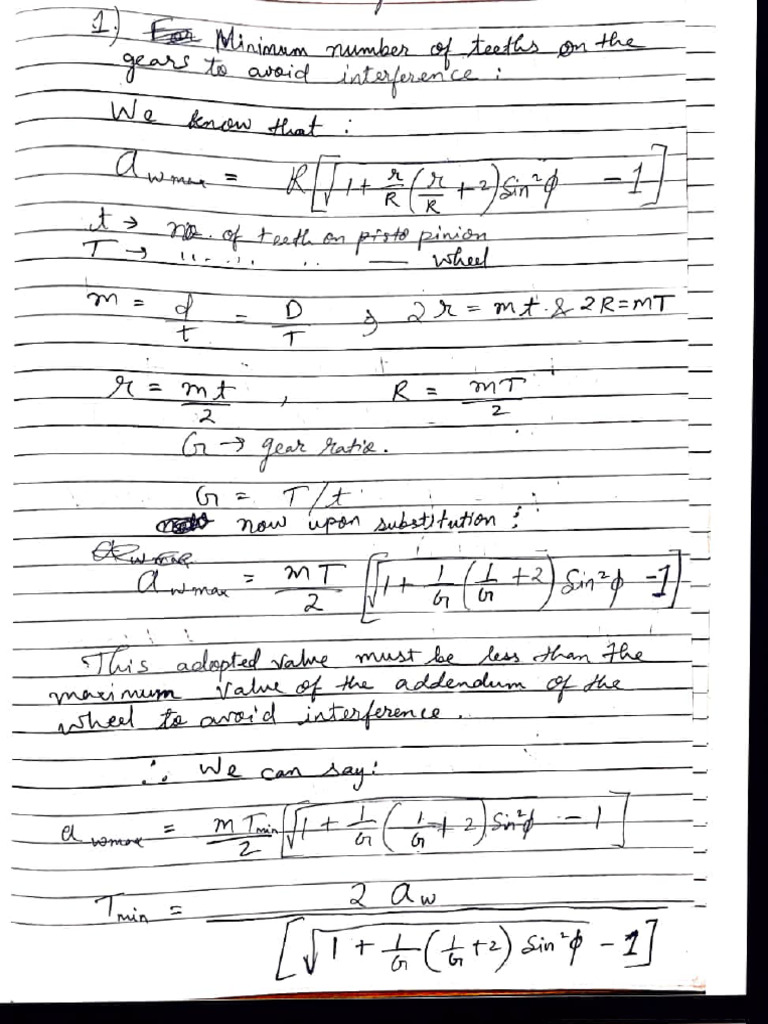 1.) Minimum number of teeths on the
gears to avoid interference :
We know that :
a_w max = R[√(1 + r/R (r/R + 2) Sin²φ) - 1]
t → no. of teeth on pinion
T → ,, ... ,, ... .. — wheel
m = d/t = D/T ⇒ 2r = mt & 2R = mT
r = mt/2 , R = mT/2
G → gear ratio.
G = T/t
now upon substitution :
a_w max = mT/2 [√(1 + 1/G (1/G + 2) Sin²φ) - 1]
This adopted value must be less than the
maximum value of the addendum of the
wheel to avoid interference.
∴ We can say:
a_w max = m T_min/2 [√(1 + 1/G (1/G + 2) Sin²φ) - 1]
T_min = 2 a_w / [√(1 + 1/G (1/G + 2) Sin²φ) - 1]